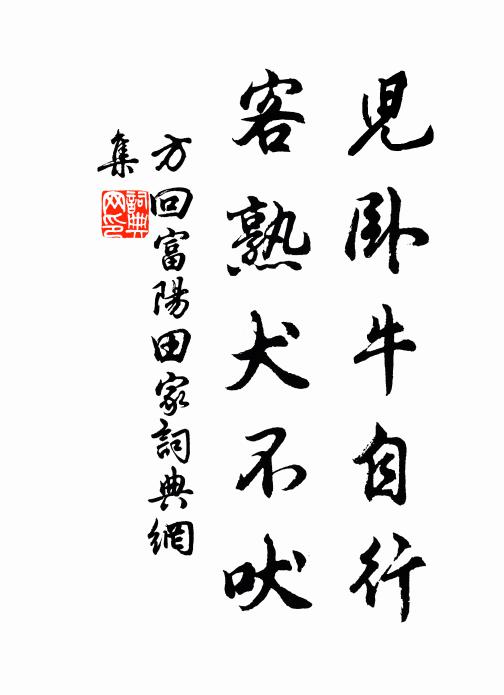 兒臥牛自行
客熟犬不吠
方回富陽田家詞典網
集
詞典
网印